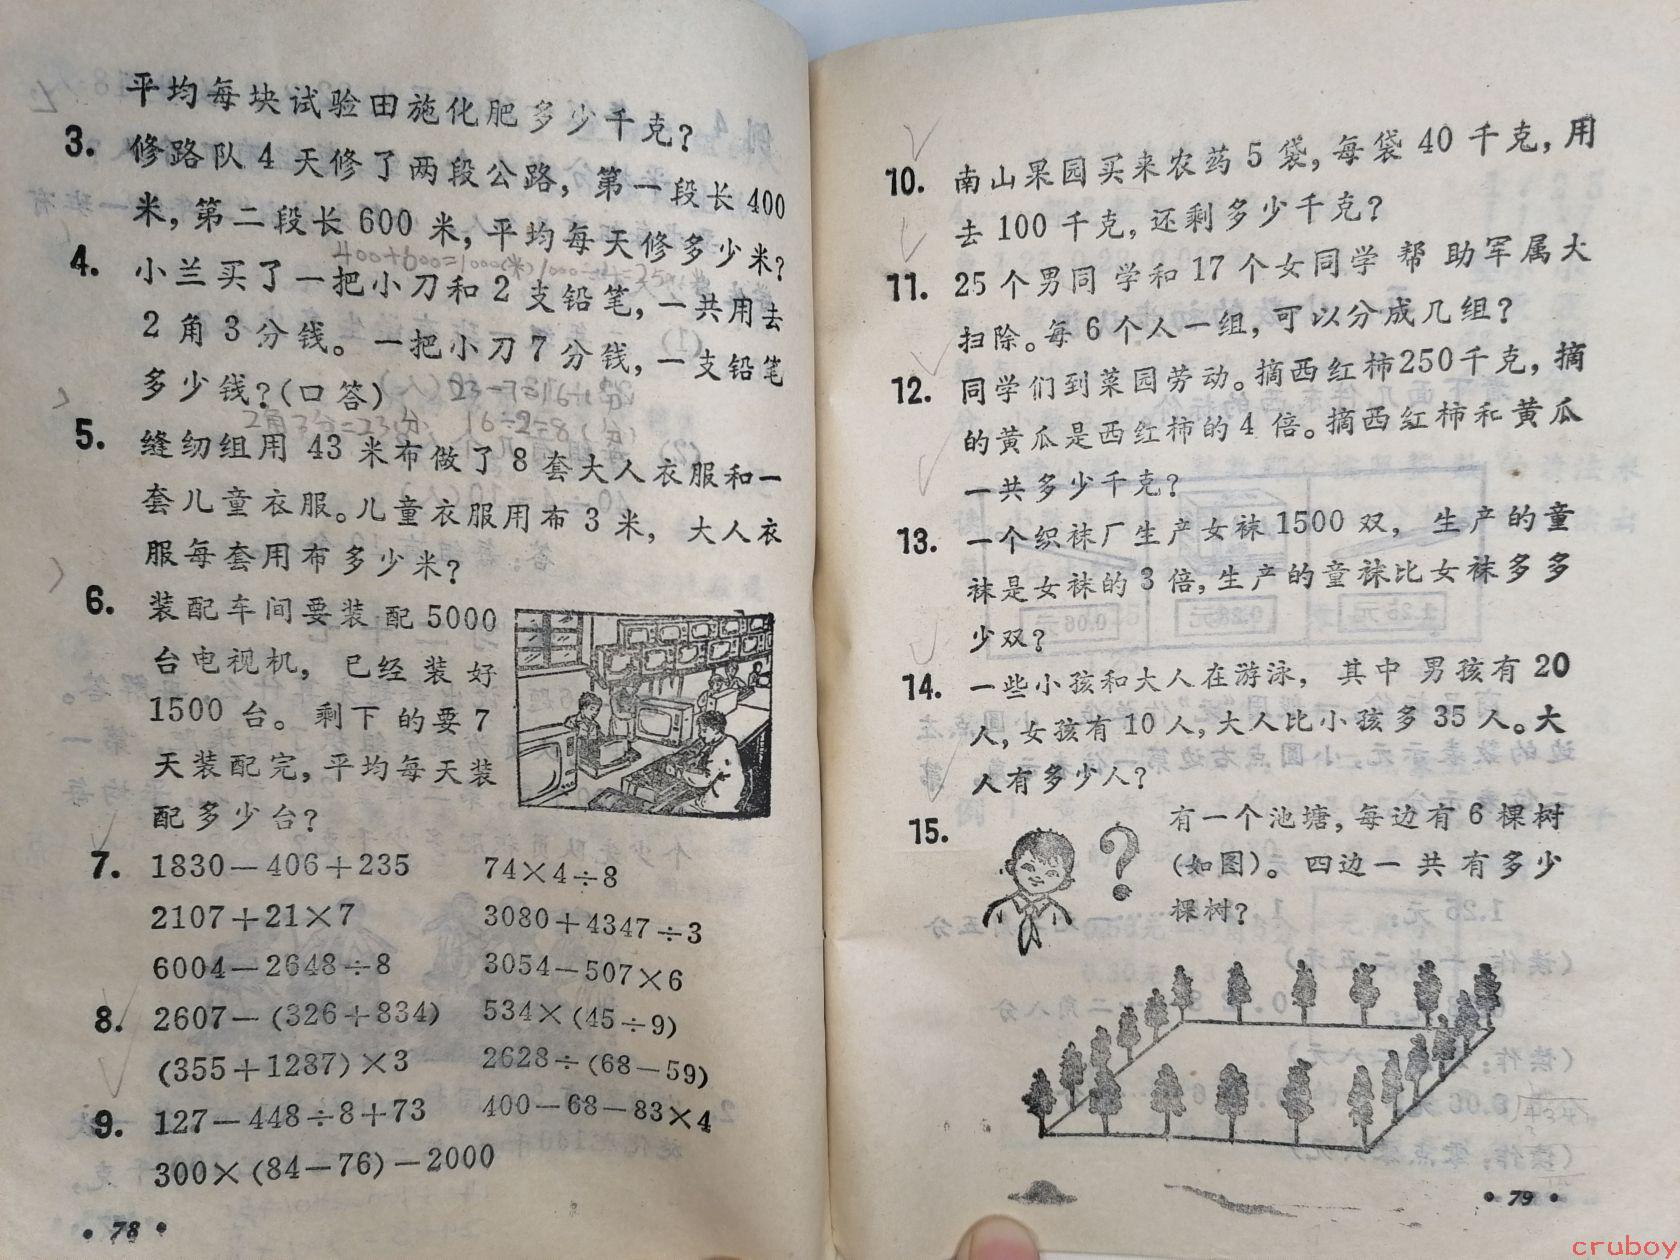 平均每块试验田施化肥多少千克？
3. 修路队 4 天修了两段公路，第一段长 400
米，第二段长 600 米，平均每天修多少米？
400+600=1000(米)
4. 小兰买了一把小刀和 2 支铅笔，一共用去
2 角 3 分钱。一把小刀 7 分钱，一支铅笔
多少钱？(口答)
23-7=16(分)
2角3分=23分 16÷2=8(分)
5. 缝纫组用 43 米布做了 8 套大人衣服和一
套儿童衣服。儿童衣服用布 3 米，大人衣
服每套用布多少米？
6. 装配车间要装配 5000
台电视机，已经装好
1500 台。剩下的要 7
天装配完，平均每天装
配多少台？
7. 1830－406＋235 74×4÷8
2107＋21×7 3080＋4347÷3
6004－2648÷8 3054－507×6
8. 2607－(326＋834) 534×(45÷9)
(355＋1287)×3 2628÷(68－59)
9. 127－448÷8＋73 400－68－83×4
300×(84－76)－2000
• 78 •
10. 南山果园买来农药 5 袋，每袋 40 千克，用
去 100 千克，还剩多少千克？
11. 25 个男同学和 17 个女同学帮助军属大
扫除。每 6 个人一组，可以分成几组？
12. 同学们到菜园劳动。摘西红柿250千克，摘
的黄瓜是西红柿的 4 倍。摘西红柿和黄瓜
一共多少千克？
13. 一个织袜厂生产女袜 1500 双，生产的童
袜是女袜的 3 倍，生产的童袜比女袜多多
少双？
14. 一些小孩和大人在游泳，其中男孩有 20
人，女孩有 10 人，大人比小孩多 35 人。大
人有多少人？
15. 有一个池塘，每边有 6 棵树
(如图)。四边一共有多少
棵树？
• 79 •
cruboy